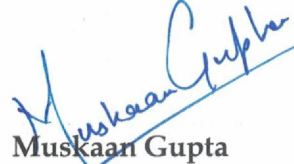 Muskaan Gupta
Muskaan Gupta